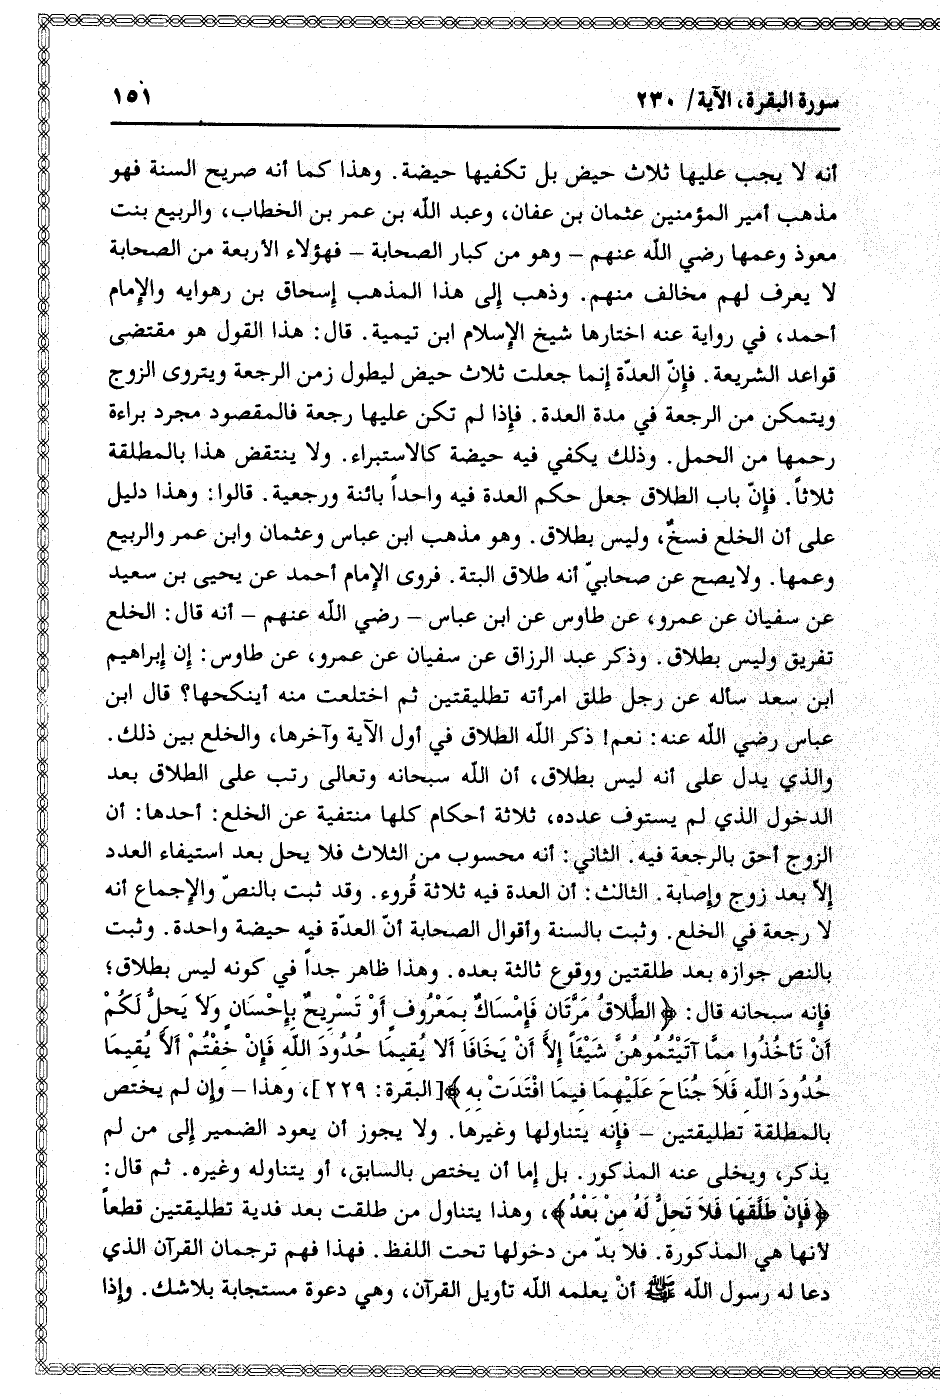 سورة البقرة، الآية/ ٢٣٠
١٥١
أنه لا يجب عليها ثلاث حيض بل تكفيها حيضة. وهذا كما أنه صريح السنة فهو
مذهب أمير المؤمنين عثمان بن عفان، وعبد الله بن عمر بن الخطاب، والربيع بنت
معوذ وعمها رضي الله عنهم – وهو من كبار الصحابة – فهؤلاء الأربعة من الصحابة
لا يعرف لهم مخالف منهم. وذهب إلى هذا المذهب إسحاق بن رهوايه والإمام
أحمد، في رواية عنه اختارها شيخ الإسلام ابن تيمية. قال: هذا القول هو مقتضى
قواعد الشريعة. فإنّ العدّة إنما جعلت ثلاث حيض ليطول زمن الرجعة ويتروى الزوج
ويتمكن من الرجعة في مدة العدة. فإذا لم تكن عليها رجعة فالمقصود مجرد براءة
رحمها من الحمل. وذلك يكفي فيه حيضة كالاستبراء. ولا ينتقض هذا بالمطلقة
ثلاثاً. فإنّ باب الطلاق جعل حكم العدة فيه واحداً بائنة ورجعية. قالوا: وهذا دليل
على أن الخلع فسخٌ، وليس بطلاق. وهو مذهب ابن عباس وعثمان وابن عمر والربيع
وعمها. ولايصح عن صحابيّ أنه طلاق البتة. فروى الإمام أحمد عن يحيى بن سعيد
عن سفيان عن عمرو، عن طاوس عن ابن عباس – رضي الله عنهم – أنه قال: الخلع
تفريق وليس بطلاق. وذكر عبد الرزاق عن سفيان عن عمرو، عن طاوس: إن إبراهيم
ابن سعد سأله عن رجل طلق امرأته تطليقتين ثم اختلعت منه أينكحها؟ قال ابن
عباس رضي الله عنه: نعم! ذكر الله الطلاق في أول الآية وآخرها، والخلع بين ذلك.
والذي يدل على أنه ليس بطلاق، أن الله سبحانه وتعالى رتب على الطلاق بعد
الدخول الذي لم يستوف عدده، ثلاثة أحكام كلها منتفية عن الخلع: أحدها: أن
الزوج أحق بالرجعة فيه. الثاني: أنه محسوب من الثلاث فلا يحل بعد استيفاء العدد
إلاّ بعد زوج وإصابة. الثالث: أن العدة فيه ثلاثة قُروء. وقد ثبت بالنصّ والإجماع أنه
لا رجعة في الخلع. وثبت بالسنة وأقوال الصحابة أنّ العدّة فيه حيضة واحدة. وثبت
بالنص جوازه بعد طلقتين ووقوع ثالثة بعده. وهذا ظاهر جداً في كونه ليس بطلاق؛
فإنه سبحانه قال: ﴿الطَّلاَقُ مَرَّتَان فَإِمْسَاكٌ بِمَعْرُوفٍ أَوْ تَسْرِيحٌ بِإِحْسَانٍ وَلاَ يَحِلُّ لَكُمْ
أَنْ تَأْخُذُوا مِمَّا آتَيْتُمُوهُنَّ شَيْئاً إِلاَّ أَنْ يَخَافَا ألا يُقِيمَا حُدُودَ اللّهِ فَإِنْ خِفْتُمْ ألاَّ يُقِيمَا
حُدُودَ اللّهِ فَلاَ جُنَاحَ عَلَيْهِمَا فِيمَا افْتَدَتْ بِهِ﴾[البقرة: ٢٢٩]، وهذا – وإن لم يختص
بالمطلقة تطليقتين – فإنه يتناولها وغيرها. ولا يجوز أن يعود الضمير إلى من لم
يذكر، ويخلى عنه المذكور. بل إما أن يختص بالسابق، أو يتناوله وغيره. ثم قال:
﴿فَإِن طَلَّقَهَا فَلاَ تَحِلُّ لَهُ مِنْ بَعْدُ﴾، وهذا يتناول من طلقت بعد فدية تطليقتين قطعاً
لأنها هي المذكورة. فلا بدّ من دخولها تحت اللفظ. فهذا فهم ترجمان القرآن الذي
دعا له رسول الله ﷺ أنْ يعلمه الله تأويل القرآن، وهي دعوة مستجابة بلاشك. وإذا